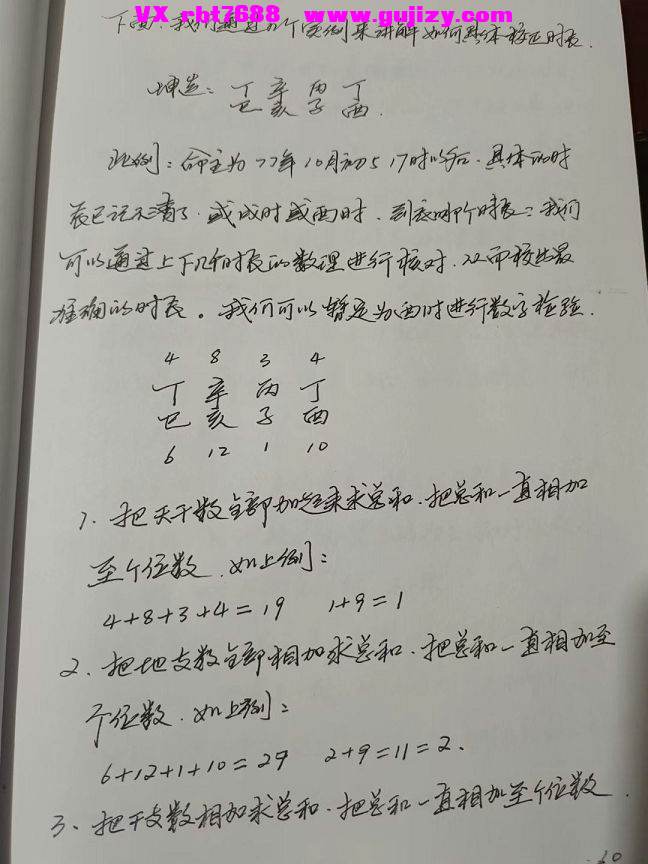 VX rht7688  www.gujizy.com
下面,我们通过几个实例来讲解如何具体校正时辰.
坤造: 丁 辛 丙 丁
巳 亥 子 酉.
此例:命主为77年10月初5 17时以后.具体的时
辰已记不清了.或戌时或酉时.到底哪个时辰:我们
可以通过上下几个时辰的数理进行核对.从而校出最
准确的时辰。我们可以暂定为酉时进行数字检验.
4 8 3 4
丁 辛 丙 丁
巳 亥 子 酉
6 12 1 10
1、把天干数全部加起来求总和.把总和一直相加
至个位数.如上例:
4+8+3+4=19 1+9=1
2、把地支数全部相加求总和.把总和一直相加至
个位数.如上例:
6+12+1+10=29 2+9=11=2.
3、把干支数相加求总和.把总和一直相加至个位数.
60